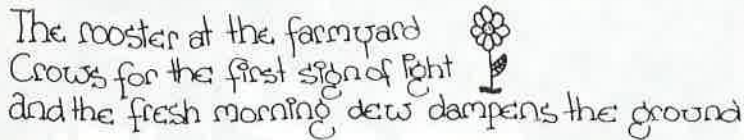 The rooster at the farmyard
Crows for the first sign of light
and the fresh morning dew dampens the ground